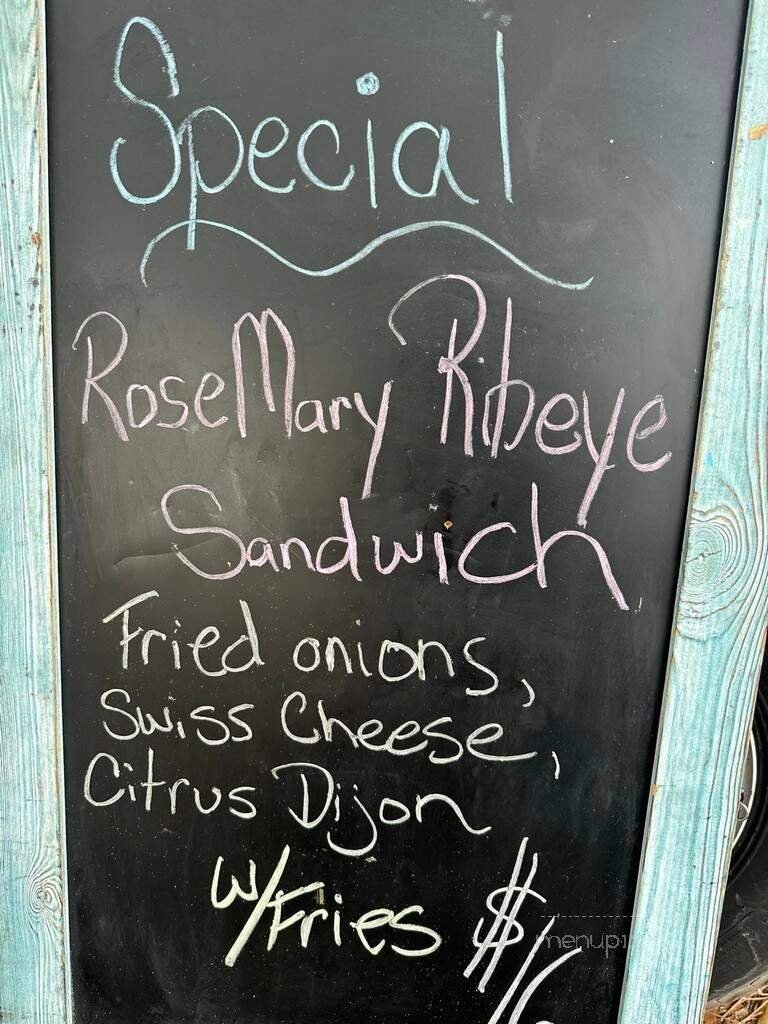 Special
RoseMary Ribeye
Sandwich
Fried onions,
Swiss Cheese,
Citrus Dijon
w/Fries $